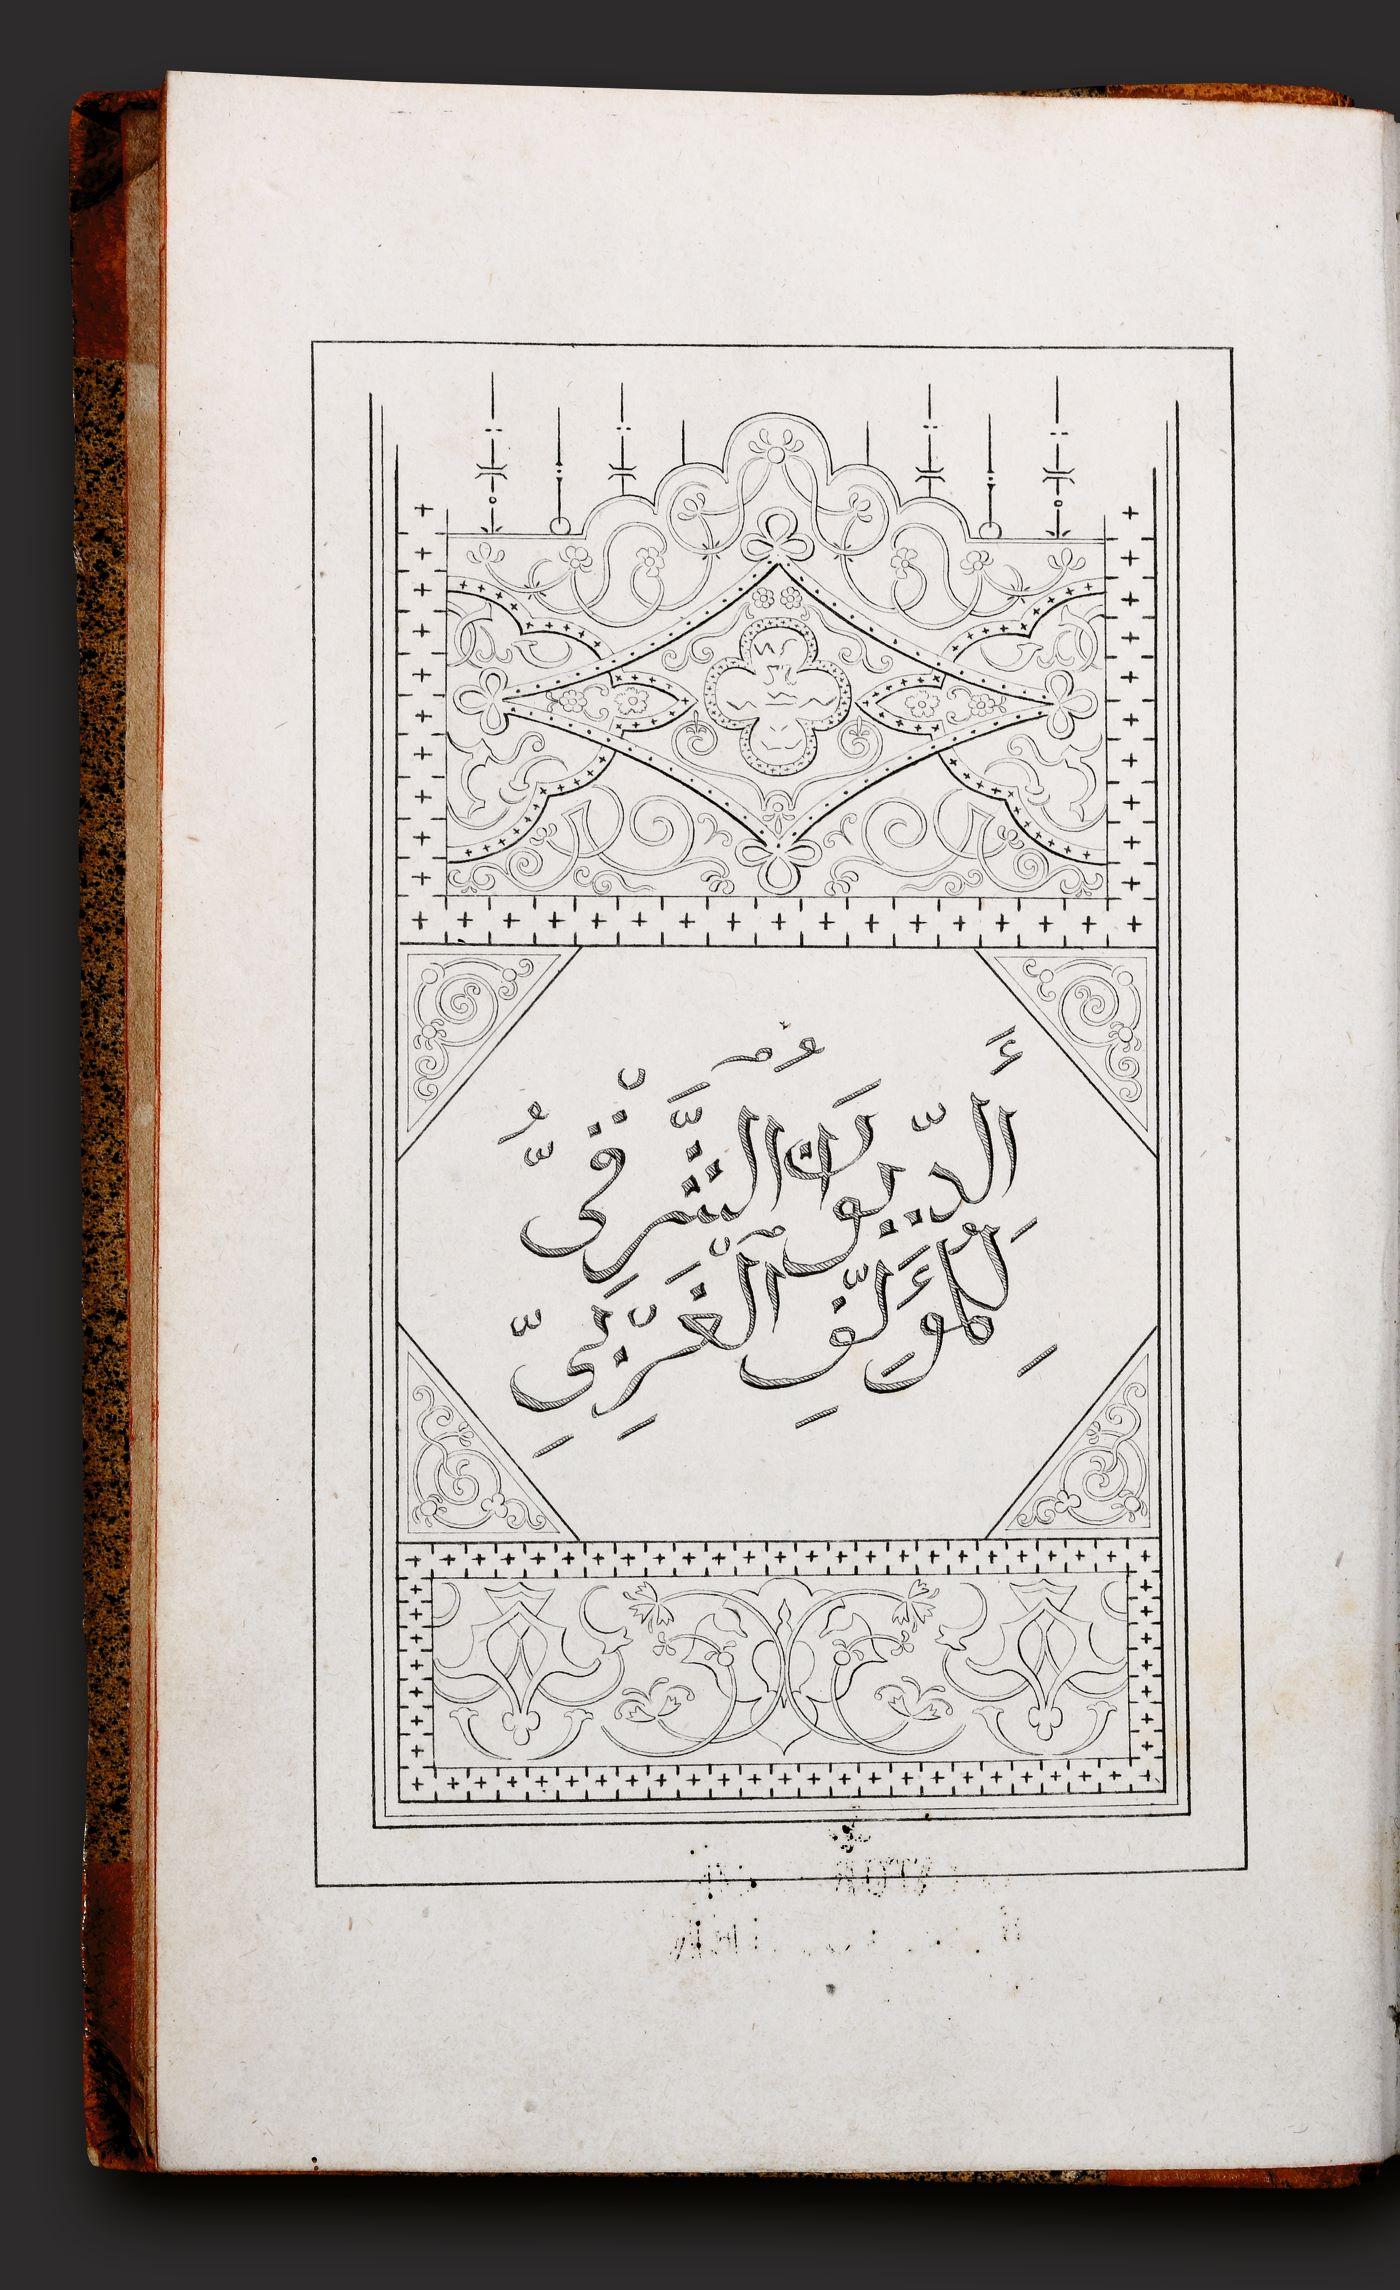 أَلدِّيوَانُ ٱلشَّرْقِيُّ
لِلْمُؤَلِّفِ ٱلْغَرْبِيِّ